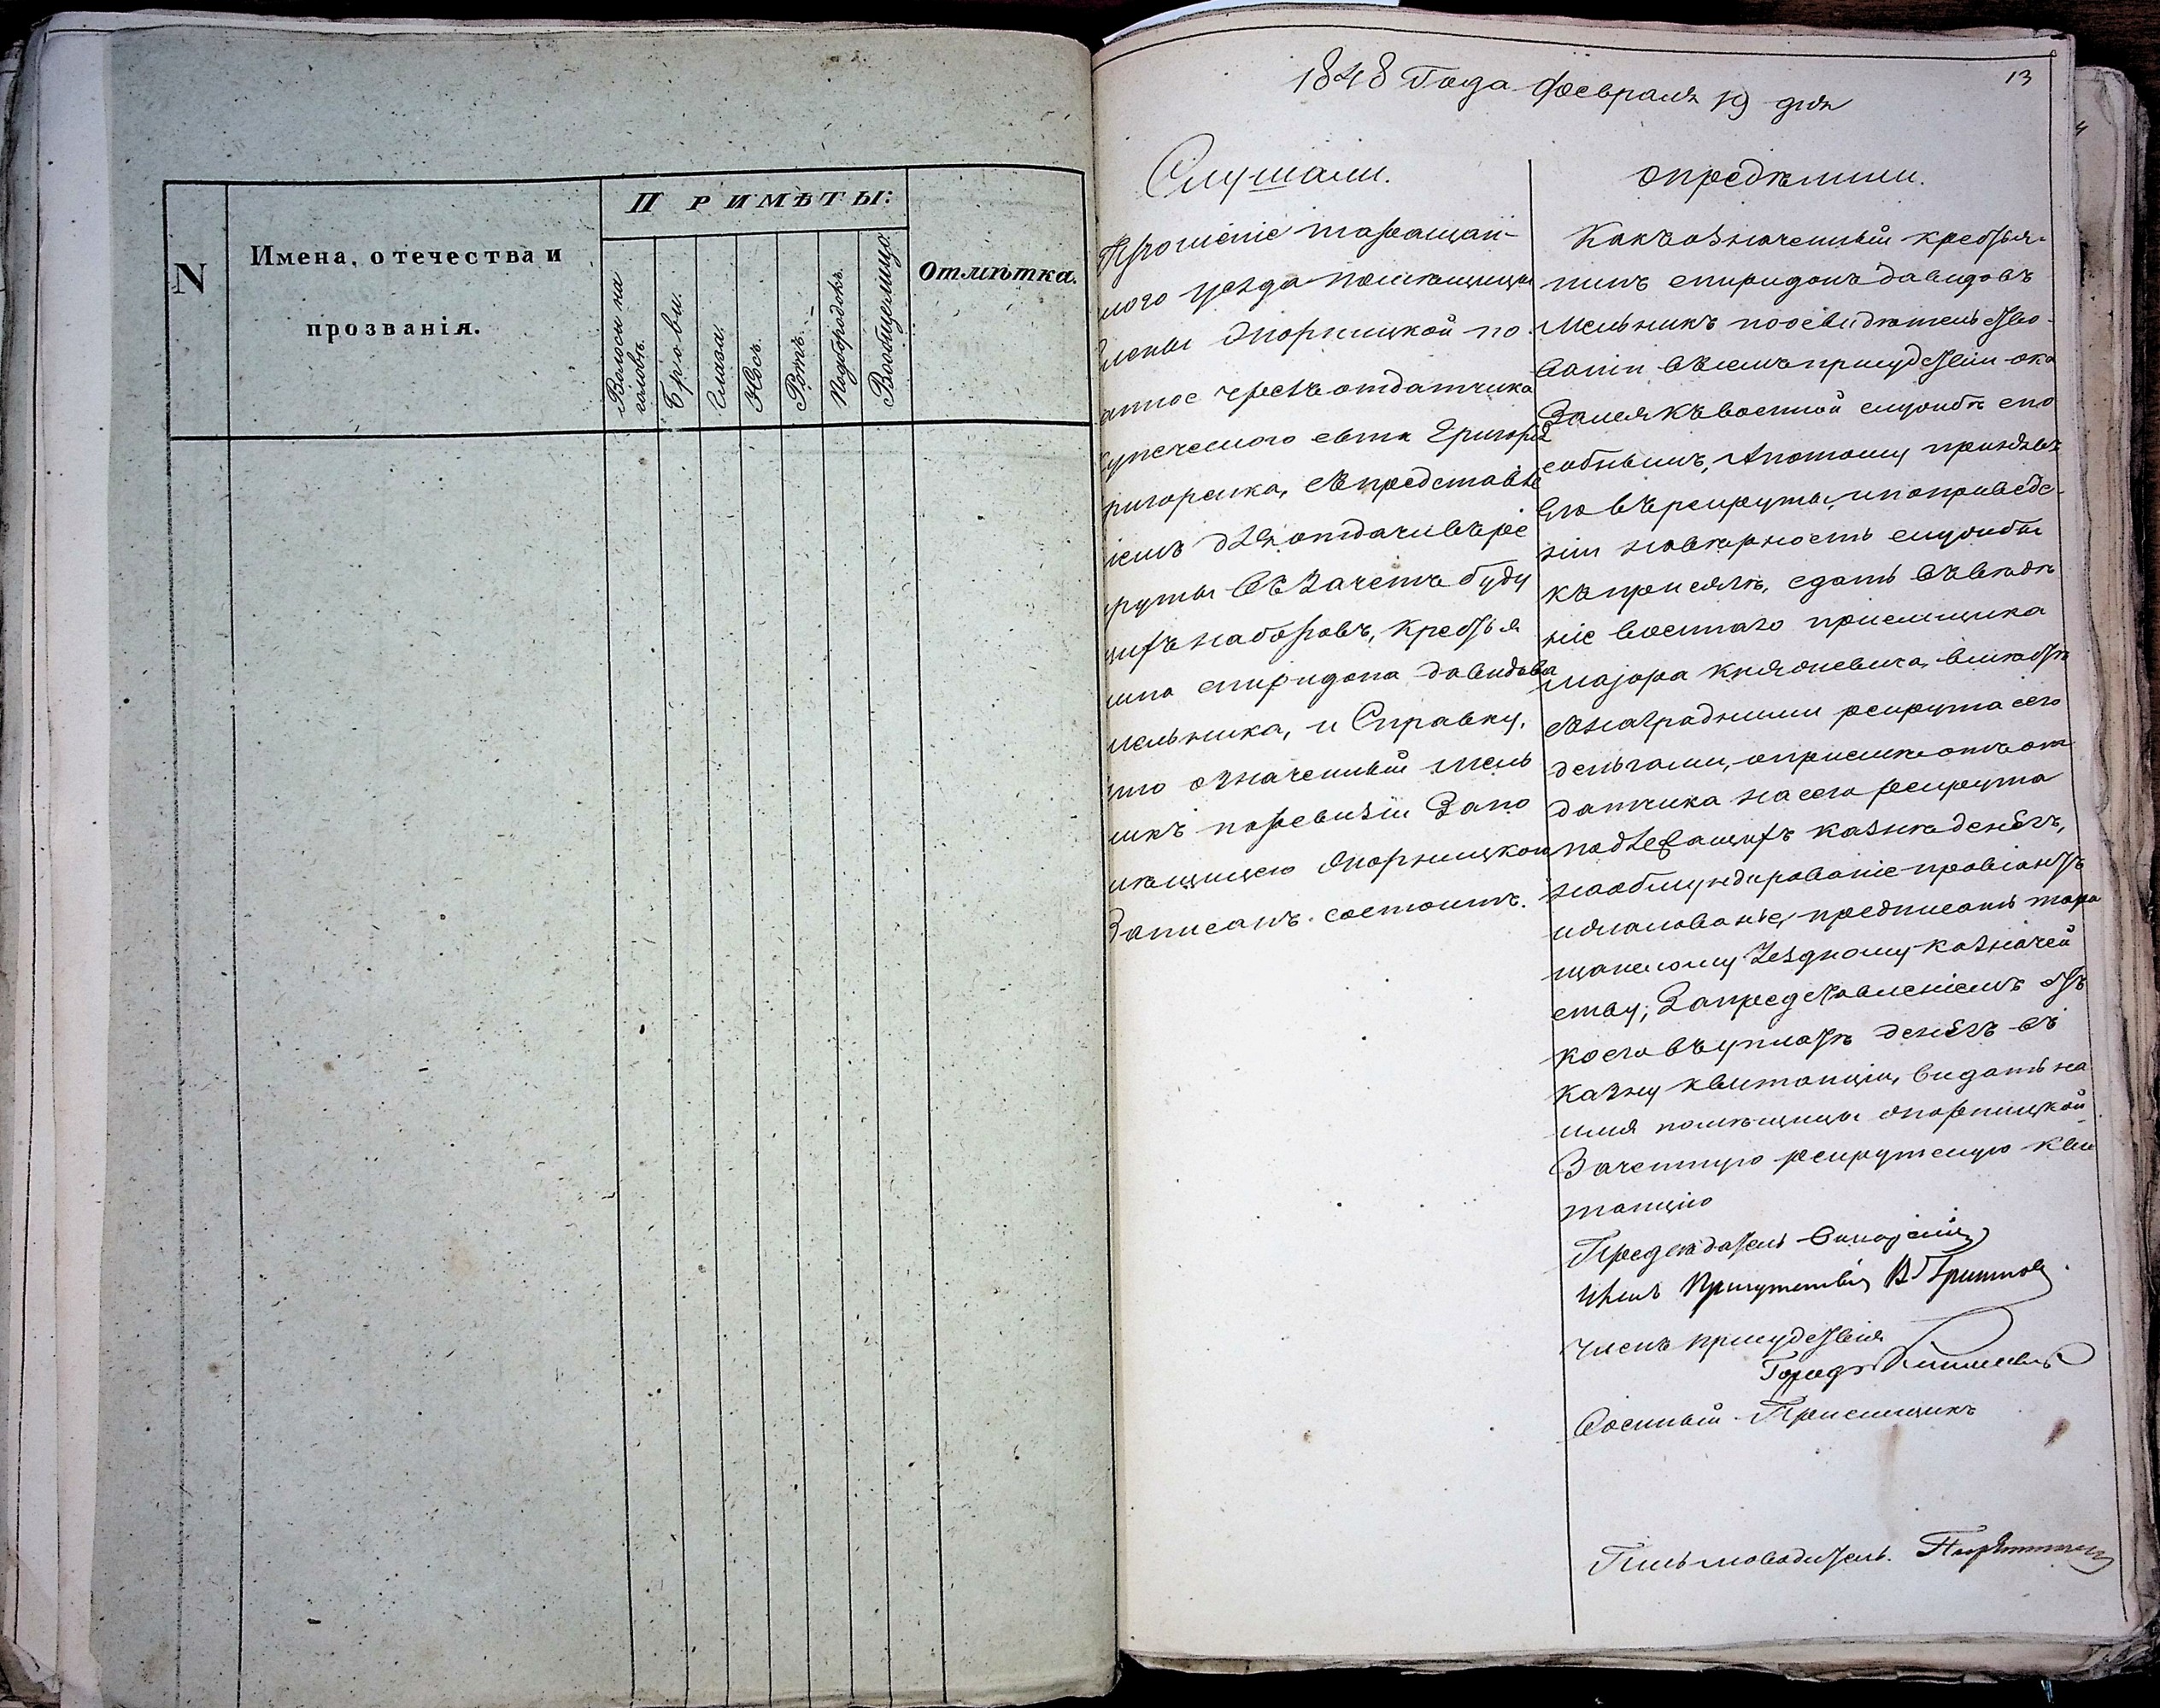 N
Имена, отечества и
прозванія.
ПРИМѢТЫ:
Волосы на
головѣ.
Брови.
Глаза.
Носъ.
Ротъ.
Подбородокъ.
Вообще лицо.
Отмѣтка.
13
1848 Года февраля 19 дня
Слушали.
Прошеніе таращан-
ского уезда помѣщицы
Елены Опорницкой по
анное чрезъ отдатчика
купеческого сына Григорія
ригоренка, съ представле
ніемъ для отдачи въ ре
круты въ зачетъ буду
щихъ наборовъ, крестья
нина спиридона давидова
мельника, и Справку,
что означенный мель
никъ по ревизіи за по
мѣщицею Опорницкою
записанъ состоитъ.
определили.
Какъ означенный крестья-
нинъ спиридонъ давидовъ
Мельникъ по освидѣтельство-
ваніи въ семъ присудствіи ока
зался къ военной службѣ спо
собнымъ, А потому принявъ
его въ рекруты, и по приведе-
ніи на вѣрность службы
къ присягѣ, сдать въ вѣдѣ
ніе военнаго приемщика
маіора Княжевича, вмѣстѣ
съ наградными рекрута сего
деньгами, о приемѣ отъ от
датчика на сего рекрута
подлежащихъ казнѣ денегъ,
на обмундированіе провіантъ
и жалованье, предписать тара
щанскому Уездному казначей
ству; За представленіемъ отъ
коего въ уплатѣ денегъ въ
казну квитанціи, видать на
имя помѣщицы Опорницкой
Зачетную рекрутскую кви
танцію
Председатель
Членъ Присутствія
Членъ присудствія
Город
Военный Приемщикъ
Письмоводитель.